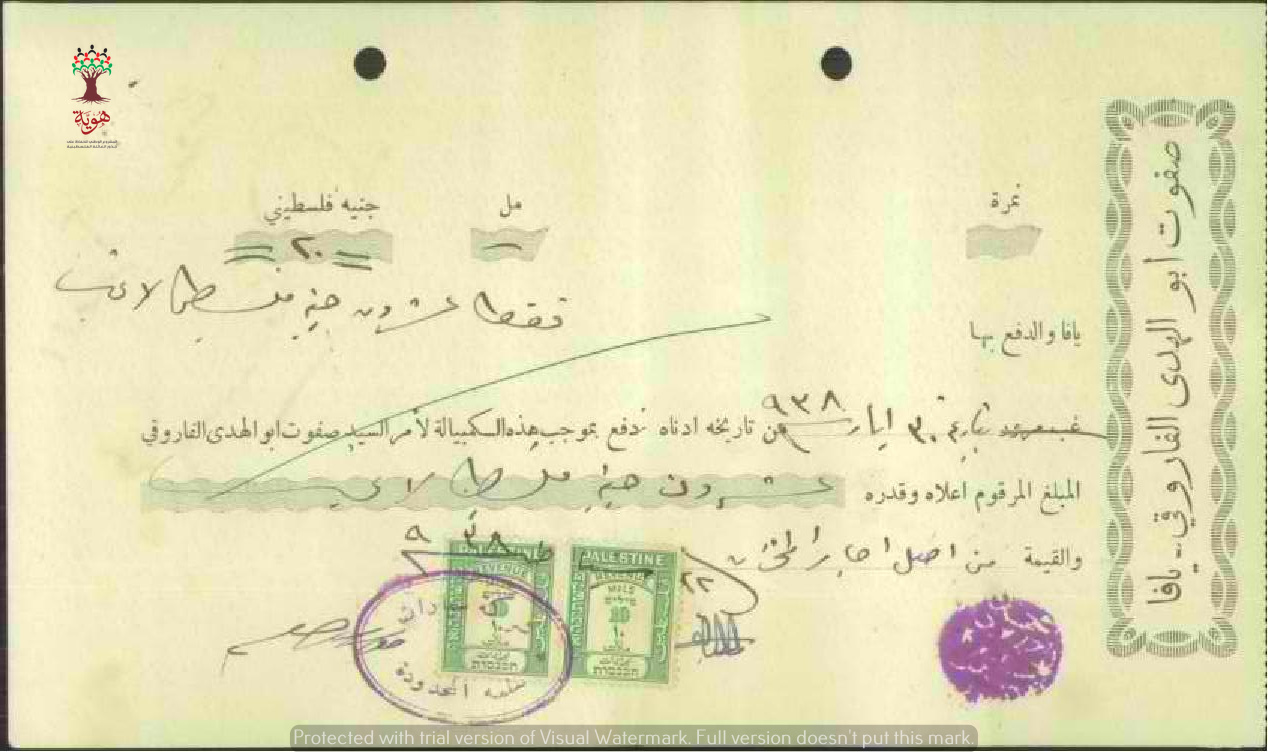 هوية
صفوت ابو الهدى الفاروقي - يافا
نمرة
مل
جنيه فلسطيني
—
= ٢٠ =
فقط عشرون جنيه فلسطيني لا غير
يافا والدفع بها
بتاريخ ٣٠ ايار ٩٣٨ من تاريخه ادناه ندفع بموجب هذه الكمبيالة لأمر السيد صفوت ابو الهدى الفاروقي
المبلغ المرقوم اعلاه وقدره عشرون جنيه فلسطيني لا غير
والقيمة من اصل
PALESTINE
REVENUE
MILS
10
١٠
PALESTINE
REVENUE
10
١٠
المحدودة
Protected with trial version of Visual Watermark. Full version doesn't put this mark.